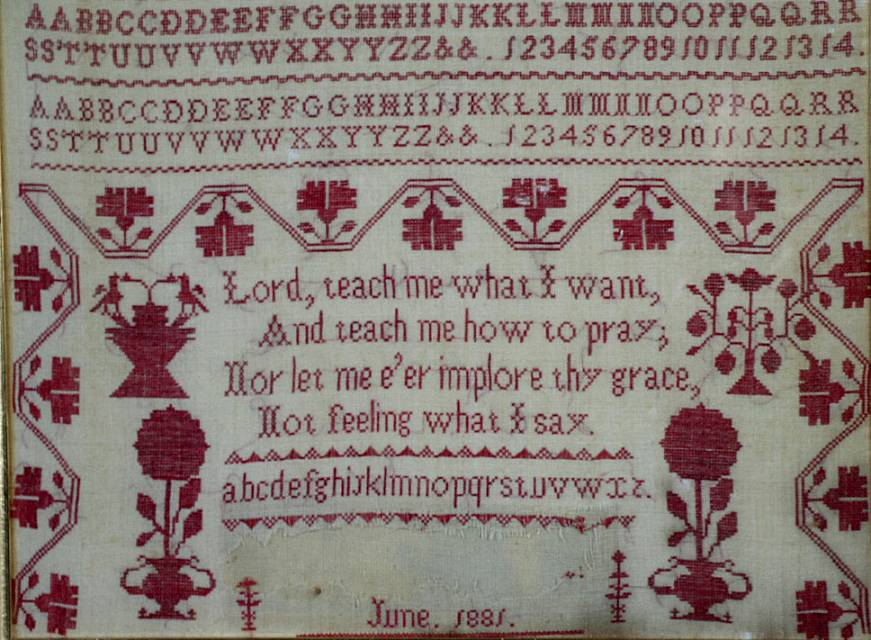 AABBCCDDEEFFGGHHIIJJKKLLMMNNOOPPQQRR
SSTTUUVVWWXXYYZZ&&..1234567891011121314.
AABBCCDDEEFFGGHHIIJJKKLLMMNNOOPPQQRR
SSTTUUVVWWXXYYZZ&&..1234567891011121314.
Lord, teach me what I want,
And teach me how to pray;
Nor let me e'er implore thy grace,
Not feeling what I say.
abcdefghijklmnopqrstuvwxz.
June. 1881.